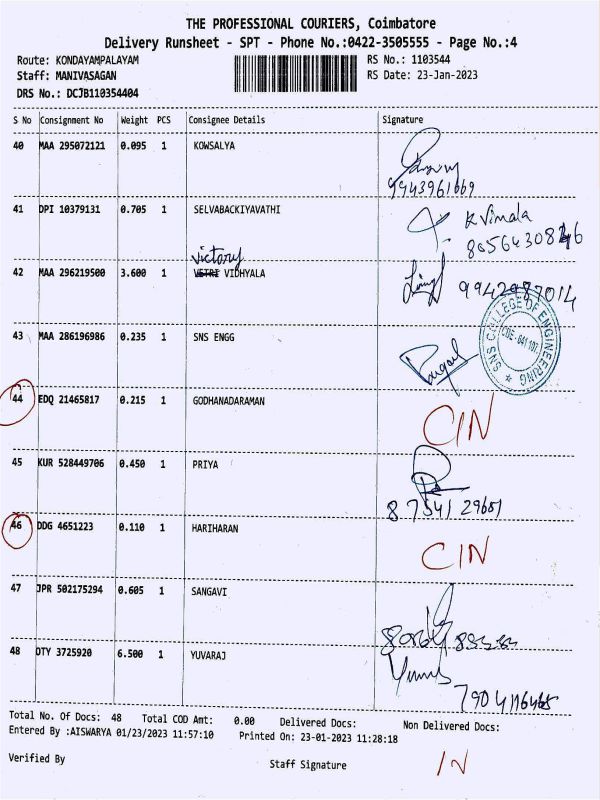 THE PROFESSIONAL COURIERS, Coimbatore
Delivery Runsheet - SPT - Phone No.:0422-3505555 - Page No.:4
Route: KONDAYAMPALAYAM RS No.: 1103544
Staff: MANIVASAGAN RS Date: 23-Jan-2023
DRS No.: DCJB110354404
S No Consignment No Weight PCS Consignee Details Signature
40 MAA 295072121 0.095 1 KOWSALYA
9943961669
41 DPI 10379131 0.705 1 SELVABACKIYAVATHI K Vimala
victory
42 MAA 296219500 3.600 1 VETRI VIDHYALA 9942987014
43 MAA 286196986 0.235 1 SNS ENGG
SNS COLLEGE OF ENGINEERING
CBE - 641 107
44 EDQ 21465817 0.215 1 GODHANADARAMAN CIN
45 KUR 528449706 0.450 1 PRIYA
8 7541 29651
46 DDG 4651223 0.110 1 HARIHARAN CIN
47 JPR 502175294 0.605 1 SANGAVI
48 OTY 3725920 6.500 1 YUVARAJ
7904116465
Total No. Of Docs: 48 Total COD Amt: 0.00 Delivered Docs: Non Delivered Docs:
Entered By :AISWARYA 01/23/2023 11:57:10 Printed On: 23-01-2023 11:28:18
Verified By Staff Signature IN